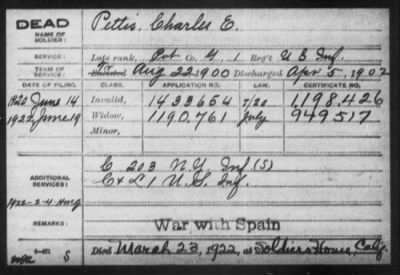 DEAD
NAME OF SOLDIER:
Pettis, Charles E.
SERVICE:
Late rank, Pvt Co. G, 1 Reg't U S Inf.
TERM OF SERVICE:
Enlisted Aug 22, 1900 Discharged Apr 5, 1902
DATE OF FILING. CLASS. APPLICATION NO. LAW. CERTIFICATE NO.
1920 June 14 Invalid, 1433654 1,198,426
1922 June 19 Widow, 1190,761 July 949517
Minor,
ADDITIONAL SERVICES:
C 203 N.Y. Inf (S)
C & L 1 U.S. Inf.
REMARKS:
War with Spain
Died March 23, 1922, at Soldiers Home, Calif.